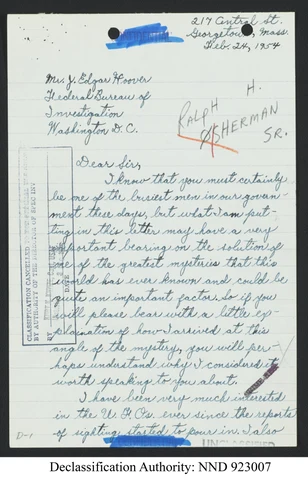 217 Central St.
Georgetown, Mass.
Feb. 24, 1954
Mr. J. Edgar Hoover
Federal Bureau of
Investigation
Washington D.C.
RALPH H.
OSHERMAN
SR.
Dear Sir,
I know that you must certainly
be one of the busiest men in our govern-
ment these days, but what I am put-
ting in this letter may have a very
important bearing on the solution of
one of the greatest mysteries that this
world has ever known and could be
quite an important factor, so if you
will please bear with a little ex-
planation of how I arrived at this
angle of the mystery, you will per-
haps understand why I considered it
worth speaking to you about.
I have been very much interested
in the U.F.O's. ever since the reports
of sighting started to pour in. I also
CLASSIFICATION CANCELLED
BY AUTHORITY OF THE DIRECTOR OF SPEC INV
DATE
D-1
UNCLASSIFIED
Declassification Authority: NND 923007